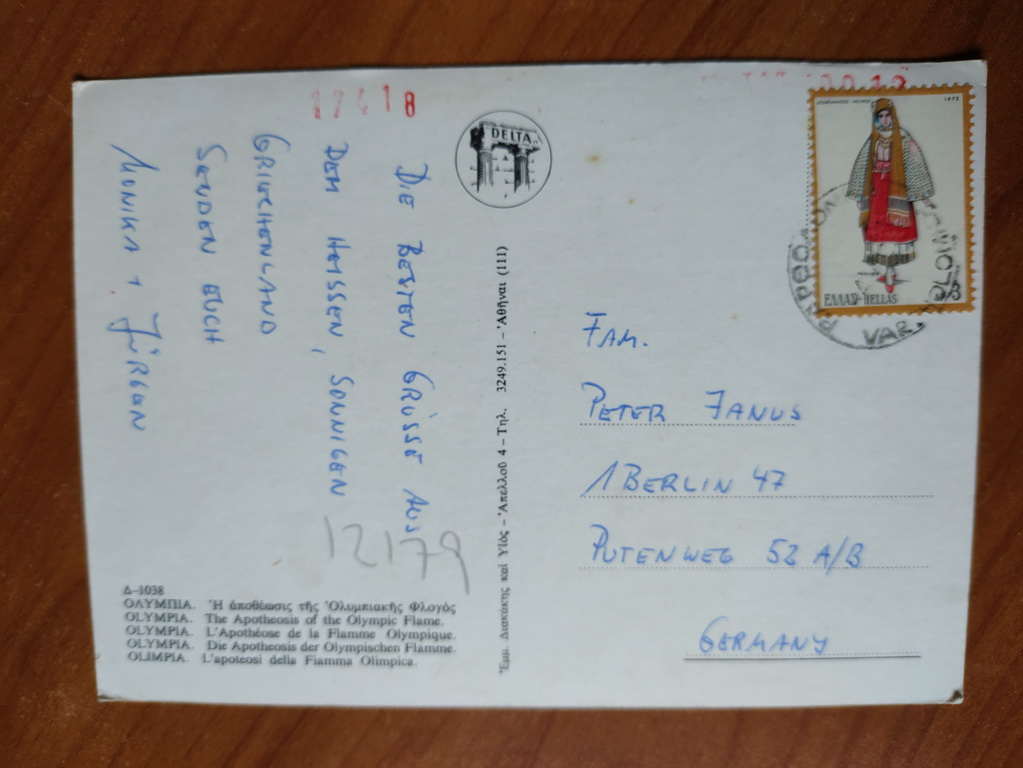 17418
DELTA
DIE BESTEN GRÜSSE AUS
DEM HEISSEN, SONNIGEN
GRIECHENLAND
SENDEN EUCH
MONIKA + JÜRGEN
12179
Δ-1038
ΟΛΥΜΠΙΑ. Ἡ ἀποθέωσις τῆς Ὀλυμπιακῆς Φλογός
OLYMPIA. The Apotheosis of the Olympic Flame.
OLYMPIA. L'Apothéose de la Flamme Olympique.
OLYMPIA. Die Apotheosis der Olympischen Flamme.
OLIMPIA. L'apoteosi della Fiamma Olimpica.
Ἐμμ. Διακάκης καὶ Υἱὸς – Ἀπελλοῦ 4 – Τηλ. 3249.151 – Ἀθῆναι (111)
1973
ΕΛΛΑΣ-HELLAS
VAR.
FAM.
PETER JANUS
1 BERLIN 47
PUTENWEG 52 A/B
GERMANY